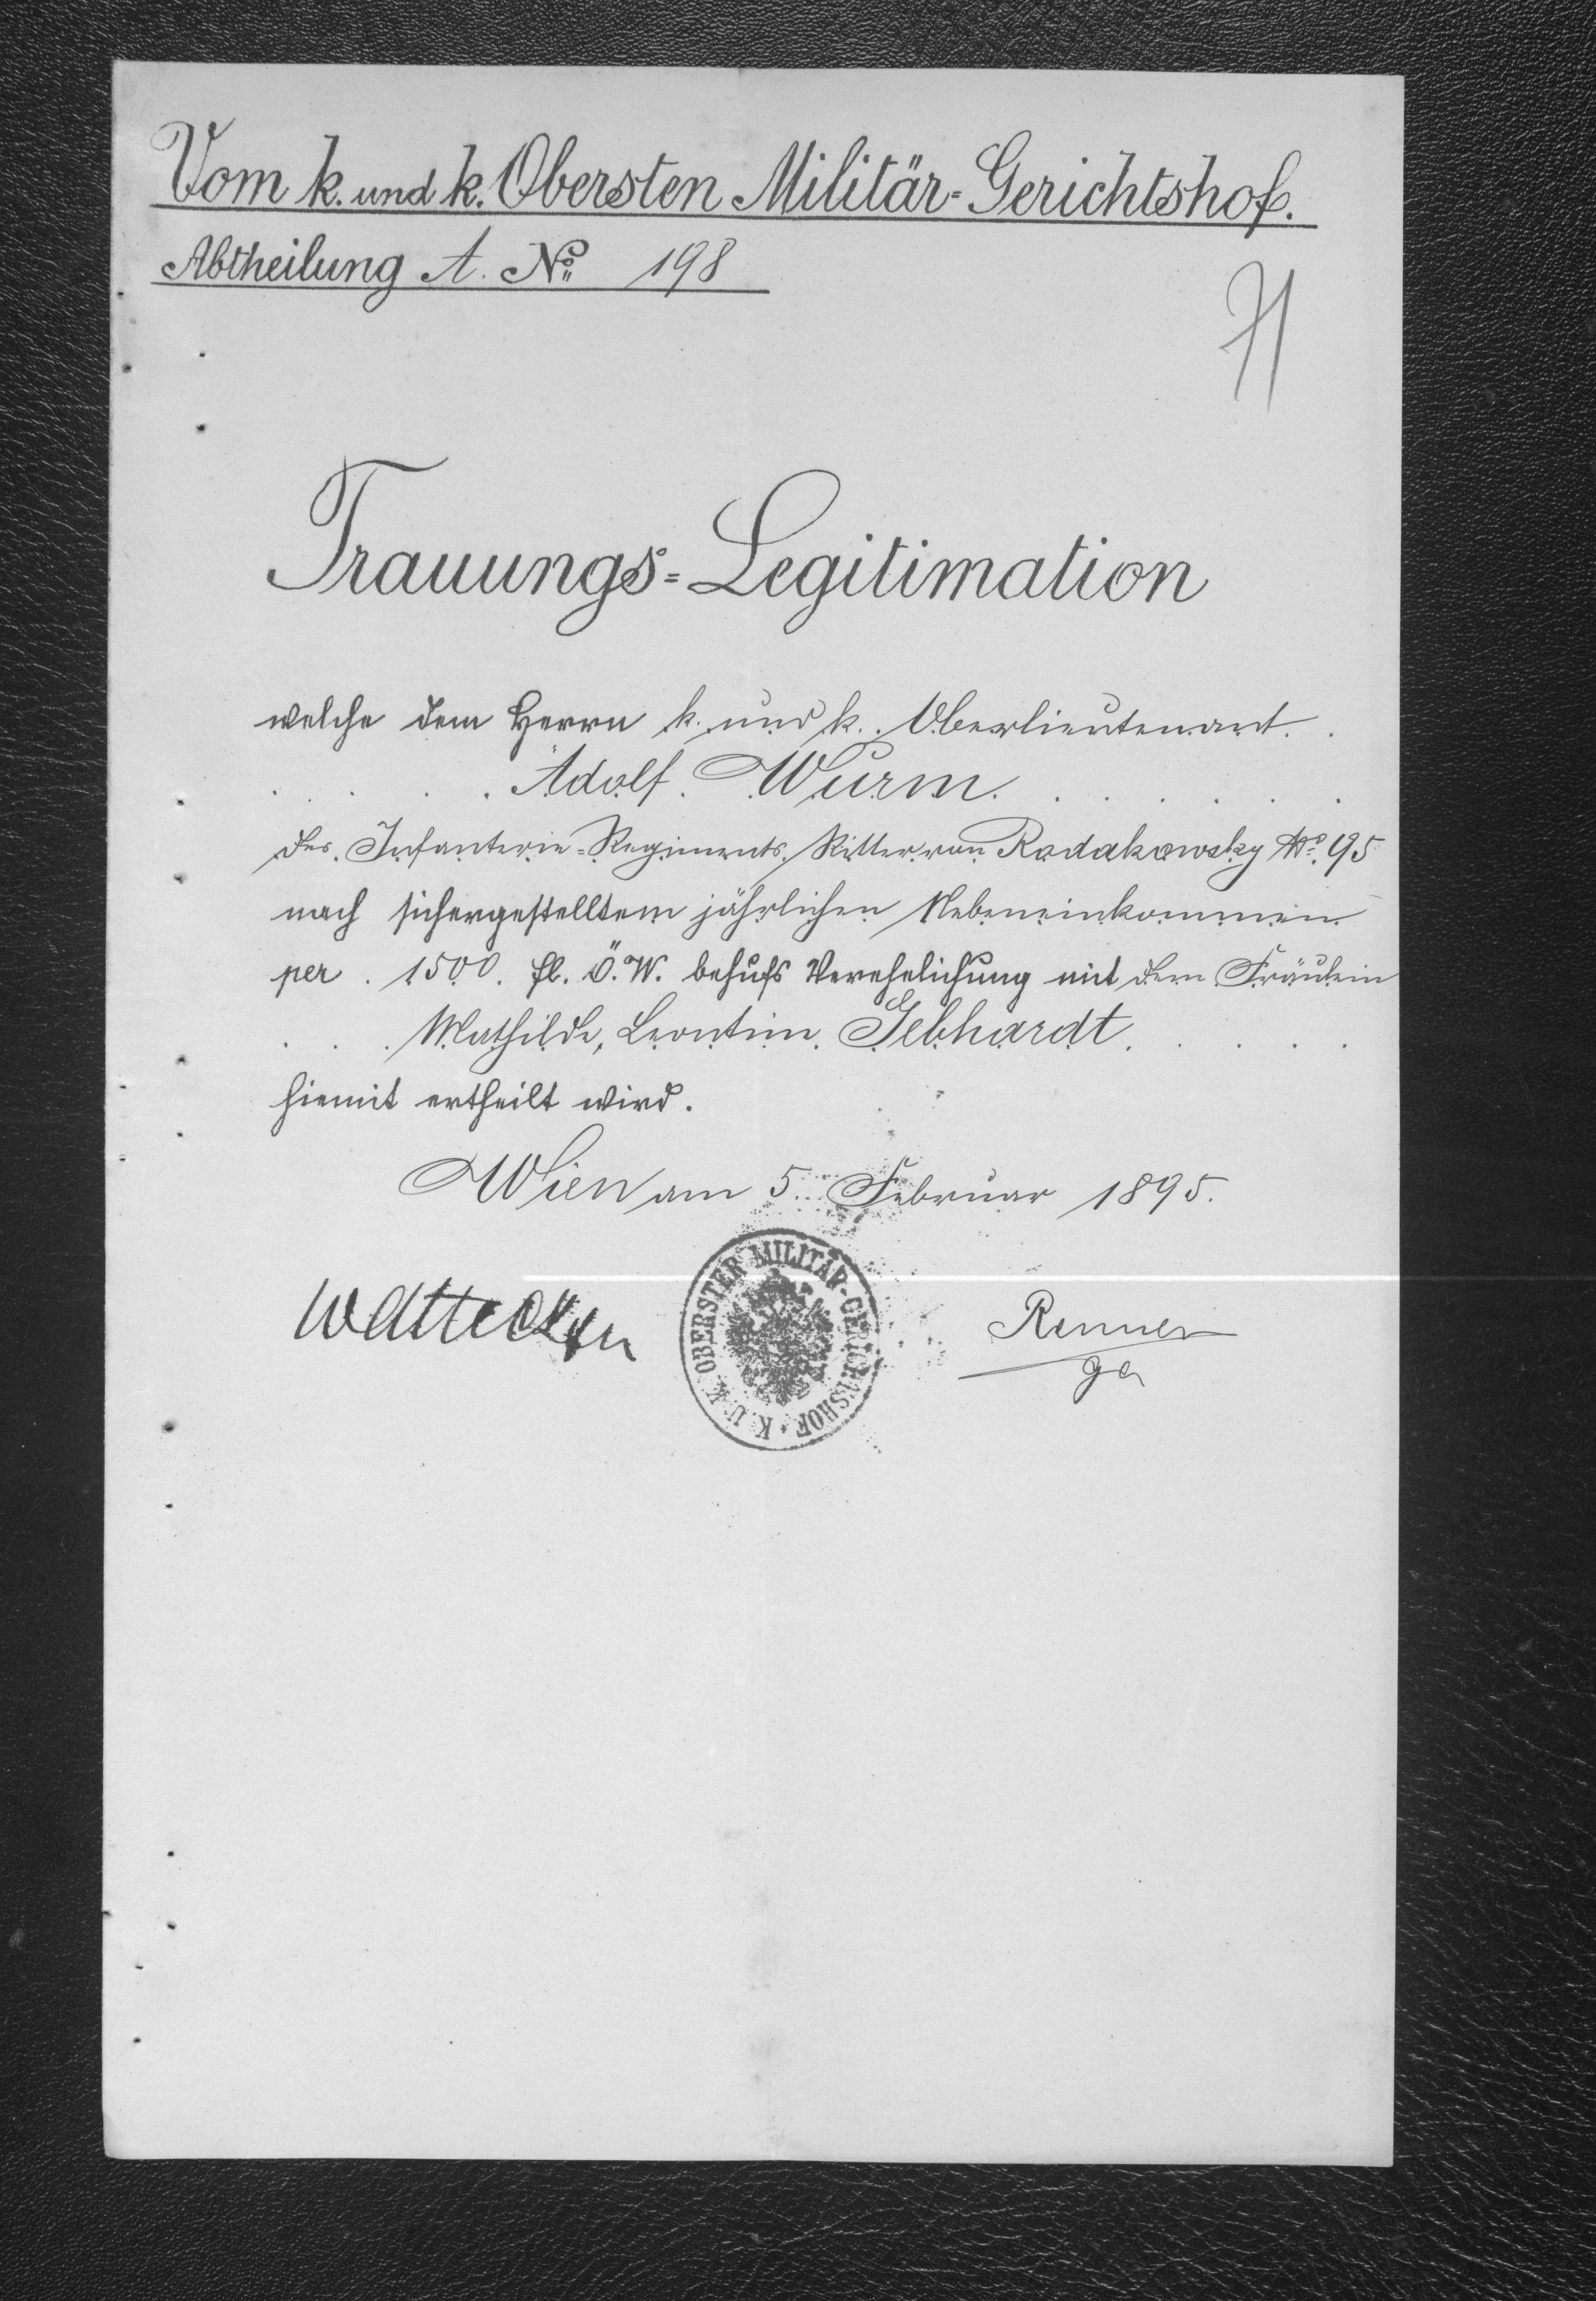 Vom k. und k. Obersten Militär-Gerichtshof.
Abtheilung A. No 198
71
Trauungs-Legitimation
welche dem Herrn k. und k. Oberlieutenant
Adolf Wurm
des Infanterie-Regiments Ritter von Rodakowsky No. 95
nach sichergestelltem jährlichen Nebeneinkommen
per 1500 fl. ö. W. behufs Verehelichung mit dem Fräulein
Mathilde, Leontine Gebhardt
hiemit ertheilt wird.
Wien am 5. Februar 1895.
K. U. K. OBERSTER MILITÄR-GERICHTSHOF
Renner